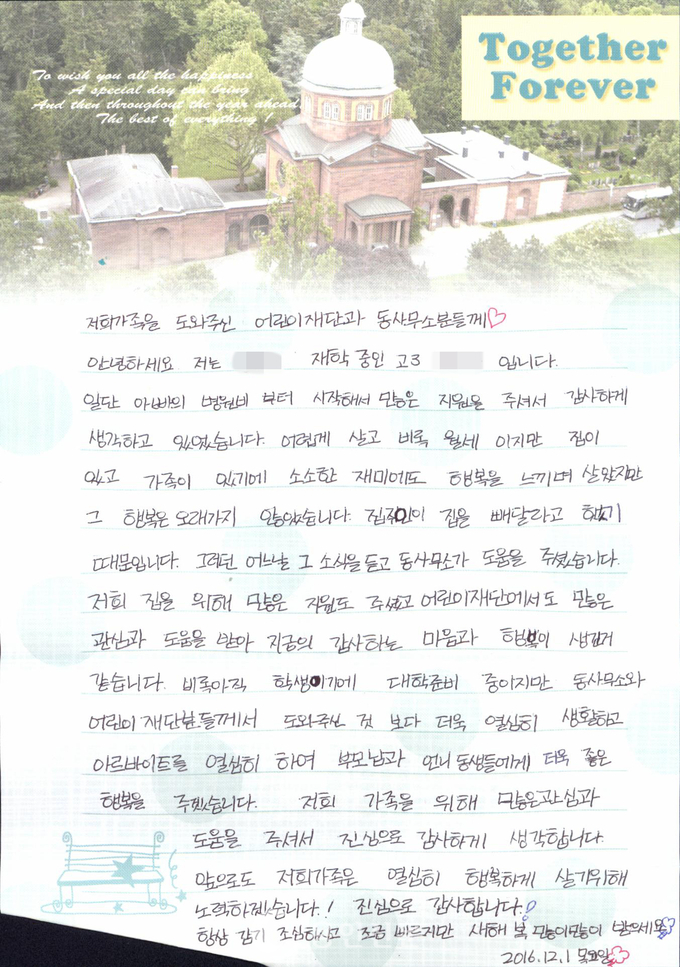 Together
Forever
To wish you all the happiness
A special day can bring
And then throughout the year ahead.
The best of everything !
저희가족을 도와주신 어린이재단과 동사무소분들께♡
안녕하세요 저는 재학 중인 고3 입니다.
일단 아빠의 병원비 부터 시작해서 많은 지원을 주셔서 감사하게
생각하고 있었습니다. 어렵게 살고 비록 월세 이지만 집이
있고 가족이 있기에 소소한 재미에도 행복을 느끼며 살았지만
그 행복은 오래가지 않았습니다. 집주인이 집을 빼달라고 했기
때문입니다. 그러던 어느날 그 소식을 듣고 동사무소가 도움을 주셨습니다.
저희 집을 위해 많은 지원도 주셨고 어린이재단에서도 많은
관심과 도움을 받아 지금의 감사하는 마음과 행복이 생긴거
같습니다. 비록아직 학생이기에 대학준비 중이지만 동사무소와
어린이재단분들께서 도와주신 것 보다 더욱 열심히 생활하고
아르바이트를 열심히 하여 부모님과 언니 동생들에게 더욱 좋은
행복을 주겠습니다. 저희 가족을 위해 많은관심과
도움을 주셔서 진심으로 감사하게 생각합니다.
앞으로도 저희가족은 열심히 행복하게 살기위해
노력하겠습니다.! 진심으로 감사합니다.!
항상 감기 조심하시고 조금 빠르지만 새해 복 많이많이 받으세요
2016.12.1 목요일